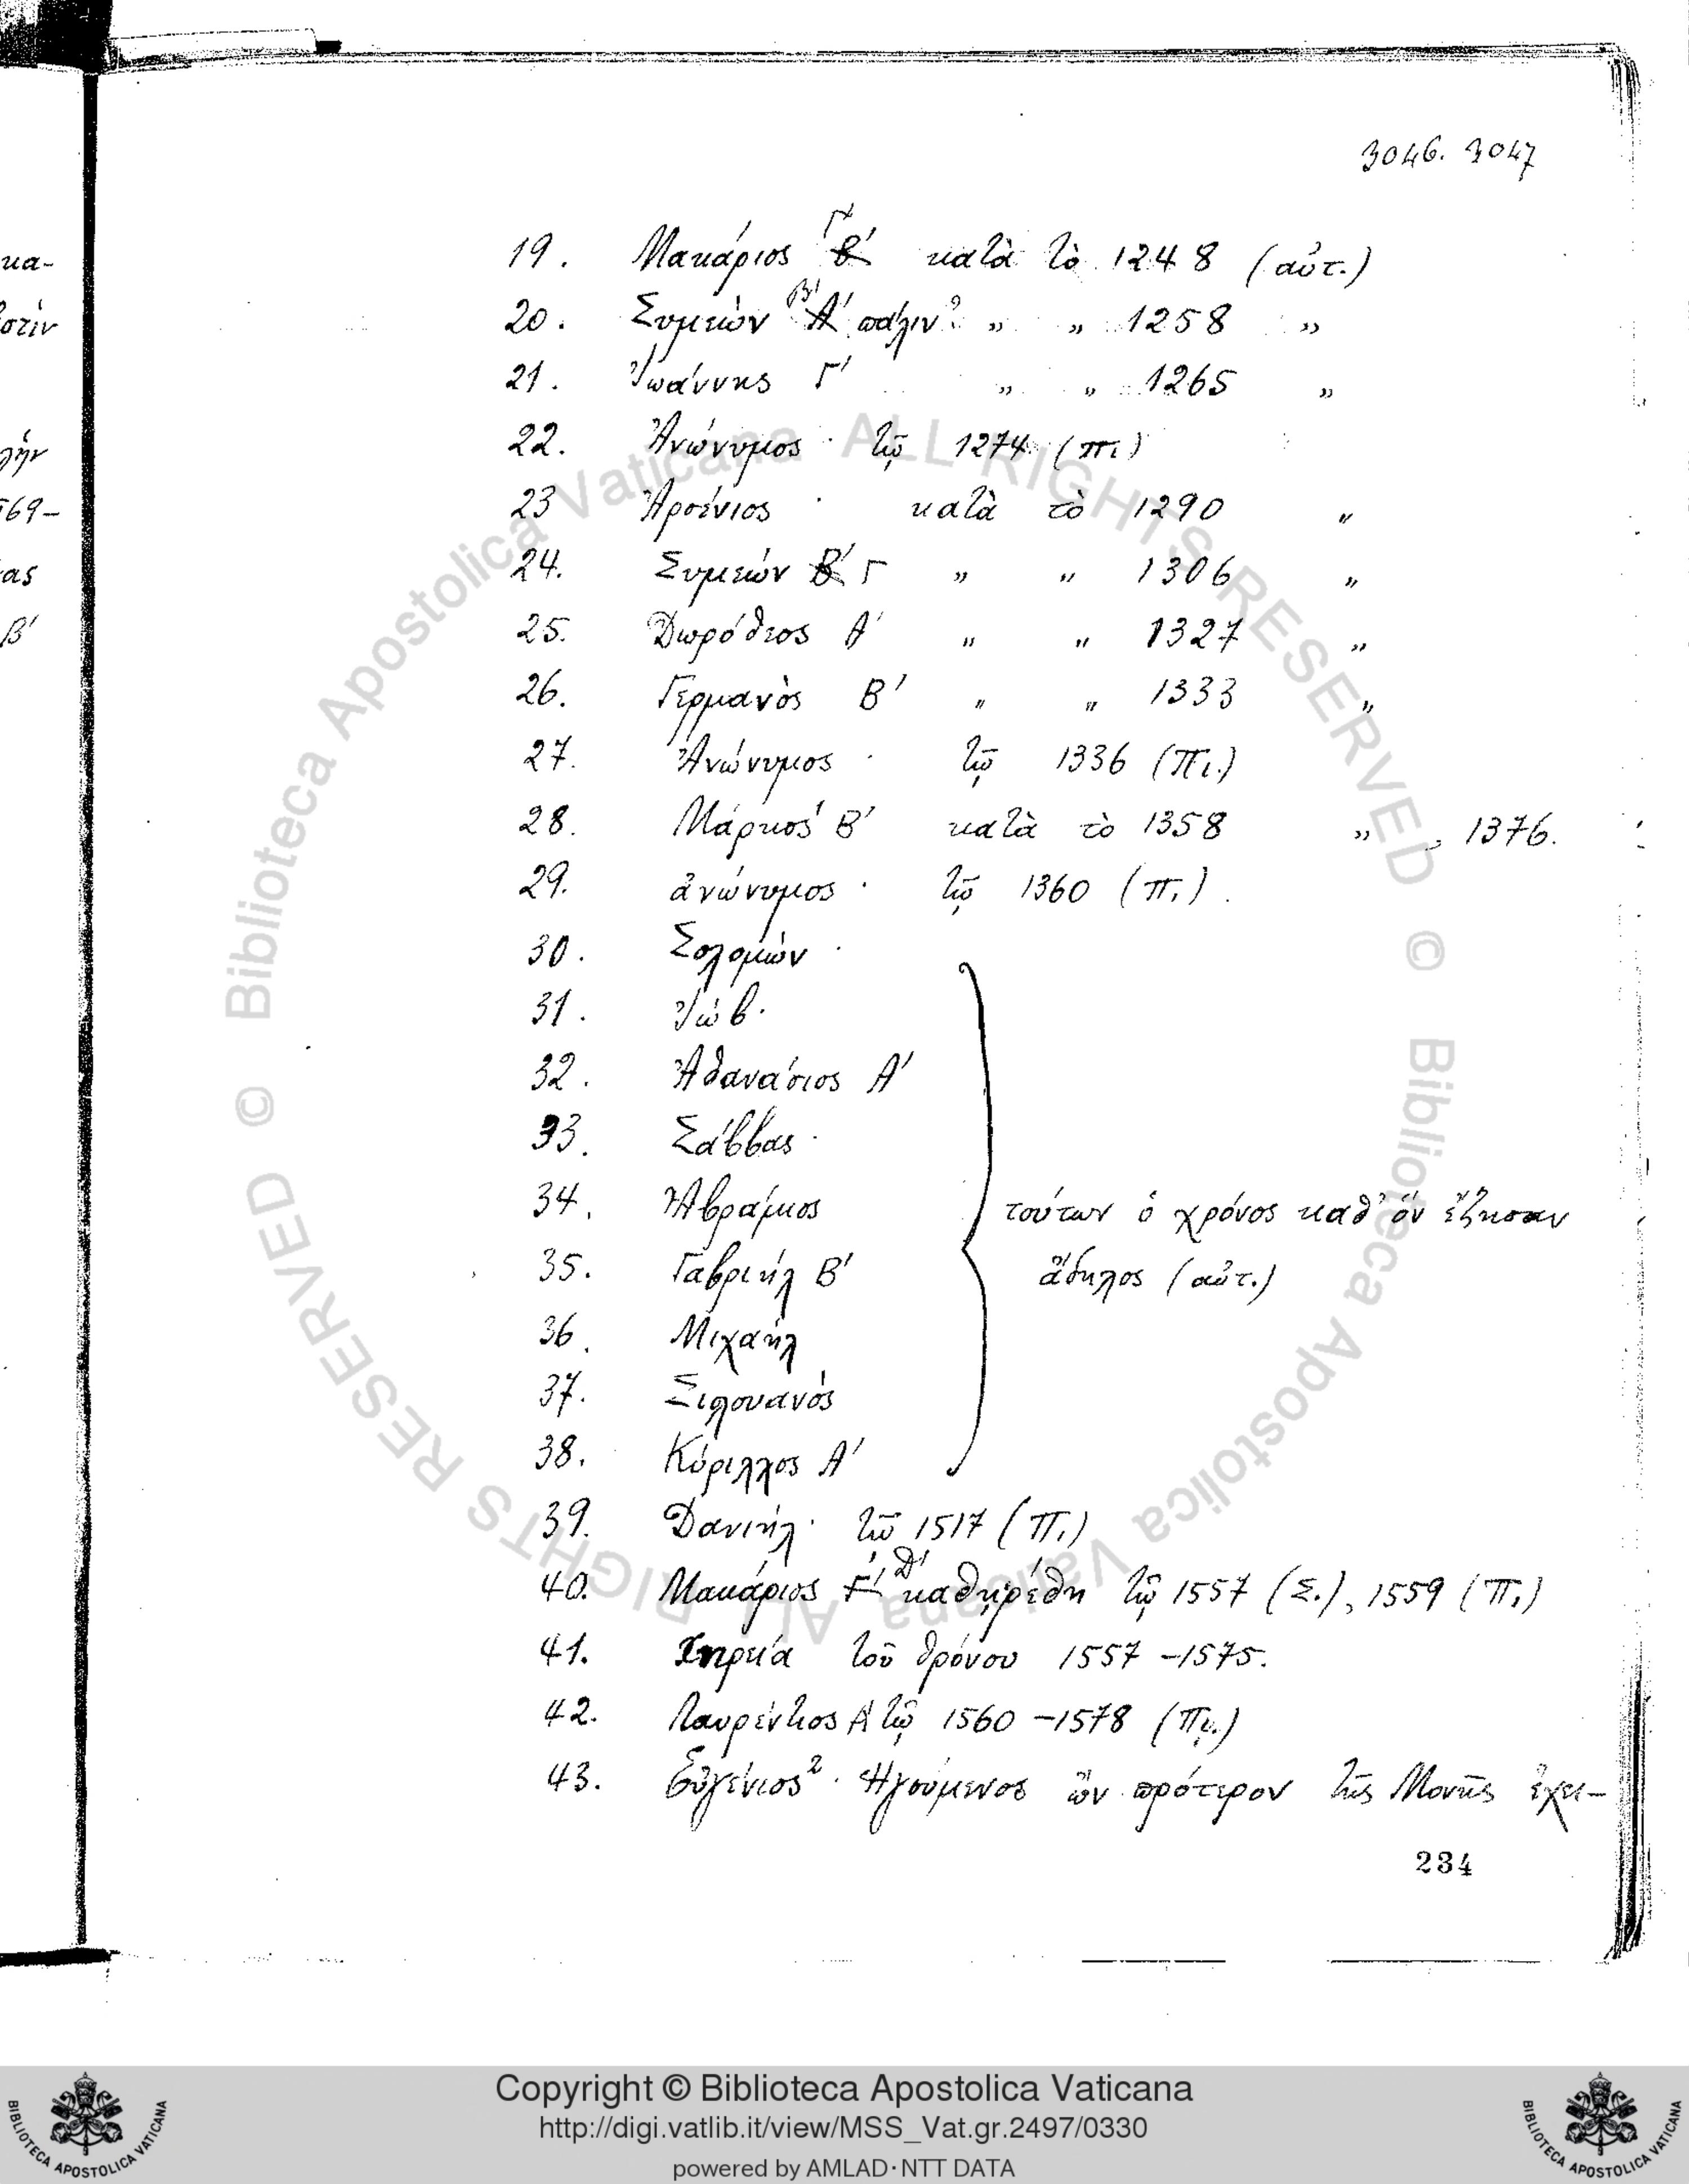 3046. 3047
19. Μακάριος Γ' Β' κατὰ τὸ 1248 (αὐτ.)
20. Συμεὼν β' Α' πάλιν? „ „ 1258 „
21. Ἰωάννης Γ' „ „ 1265 „
22. Ἀνώνυμος · τῷ 1274 (Πι)
23 Ἀρσένιος · κατὰ τὸ 1290 „
24. Συμεὼν Β' Γ „ „ 1306 „
25. Δωρόθεος Α' „ „ 1327 „
26. Γερμανὸς Β' „ „ 1333 „
27. Ἀνώνυμος · τῷ 1336 (Πι.)
28. Μάρκος Β' κατὰ τὸ 1358 „ , 1376.
29. ἀνώνυμος · τῷ 1360 (Π.)
30. Σολομών ·
31. Ἰώβ ·
32. Ἀθανάσιος Α'
33. Σάββας ·
34. Ἀβράμιος τούτων ὁ χρόνος καθ' ὃν ἔζησαν
35. Γαβριήλ Β' ἄδηλος (αὐτ.)
36. Μιχαήλ
37. Σιλουανός
38. Κύριλλος Α'
39. Δανιήλ · τῷ 1517 (Π.)
40. Μακάριος Γ' Δ' καθῃρέθη τῷ 1557 (Σ.), 1559 (Π.)
41. Χηρεία τοῦ θρόνου 1557 – 1575.
42. Λαυρέντιος Α τῷ 1560 – 1578 (Πι.)
43. Εὐγένιος² · Ἡγούμενος ὢν πρότερον τῆς Μονῆς ἐχει-
234
κα-
στίν
λήν
569-
ας
β'
© Biblioteca Apostolica Vaticana ALL RIGHTS RESERVED © Biblioteca Apostolica Vaticana ALL RIGHTS RESERVED
Copyright © Biblioteca Apostolica Vaticana
http://digi.vatlib.it/view/MSS_Vat.gr.2497/0330
powered by AMLAD·NTT DATA
BIBLIOTECA APOSTOLICA VATICANA
BIBLIOTECA APOSTOLICA VATICANA